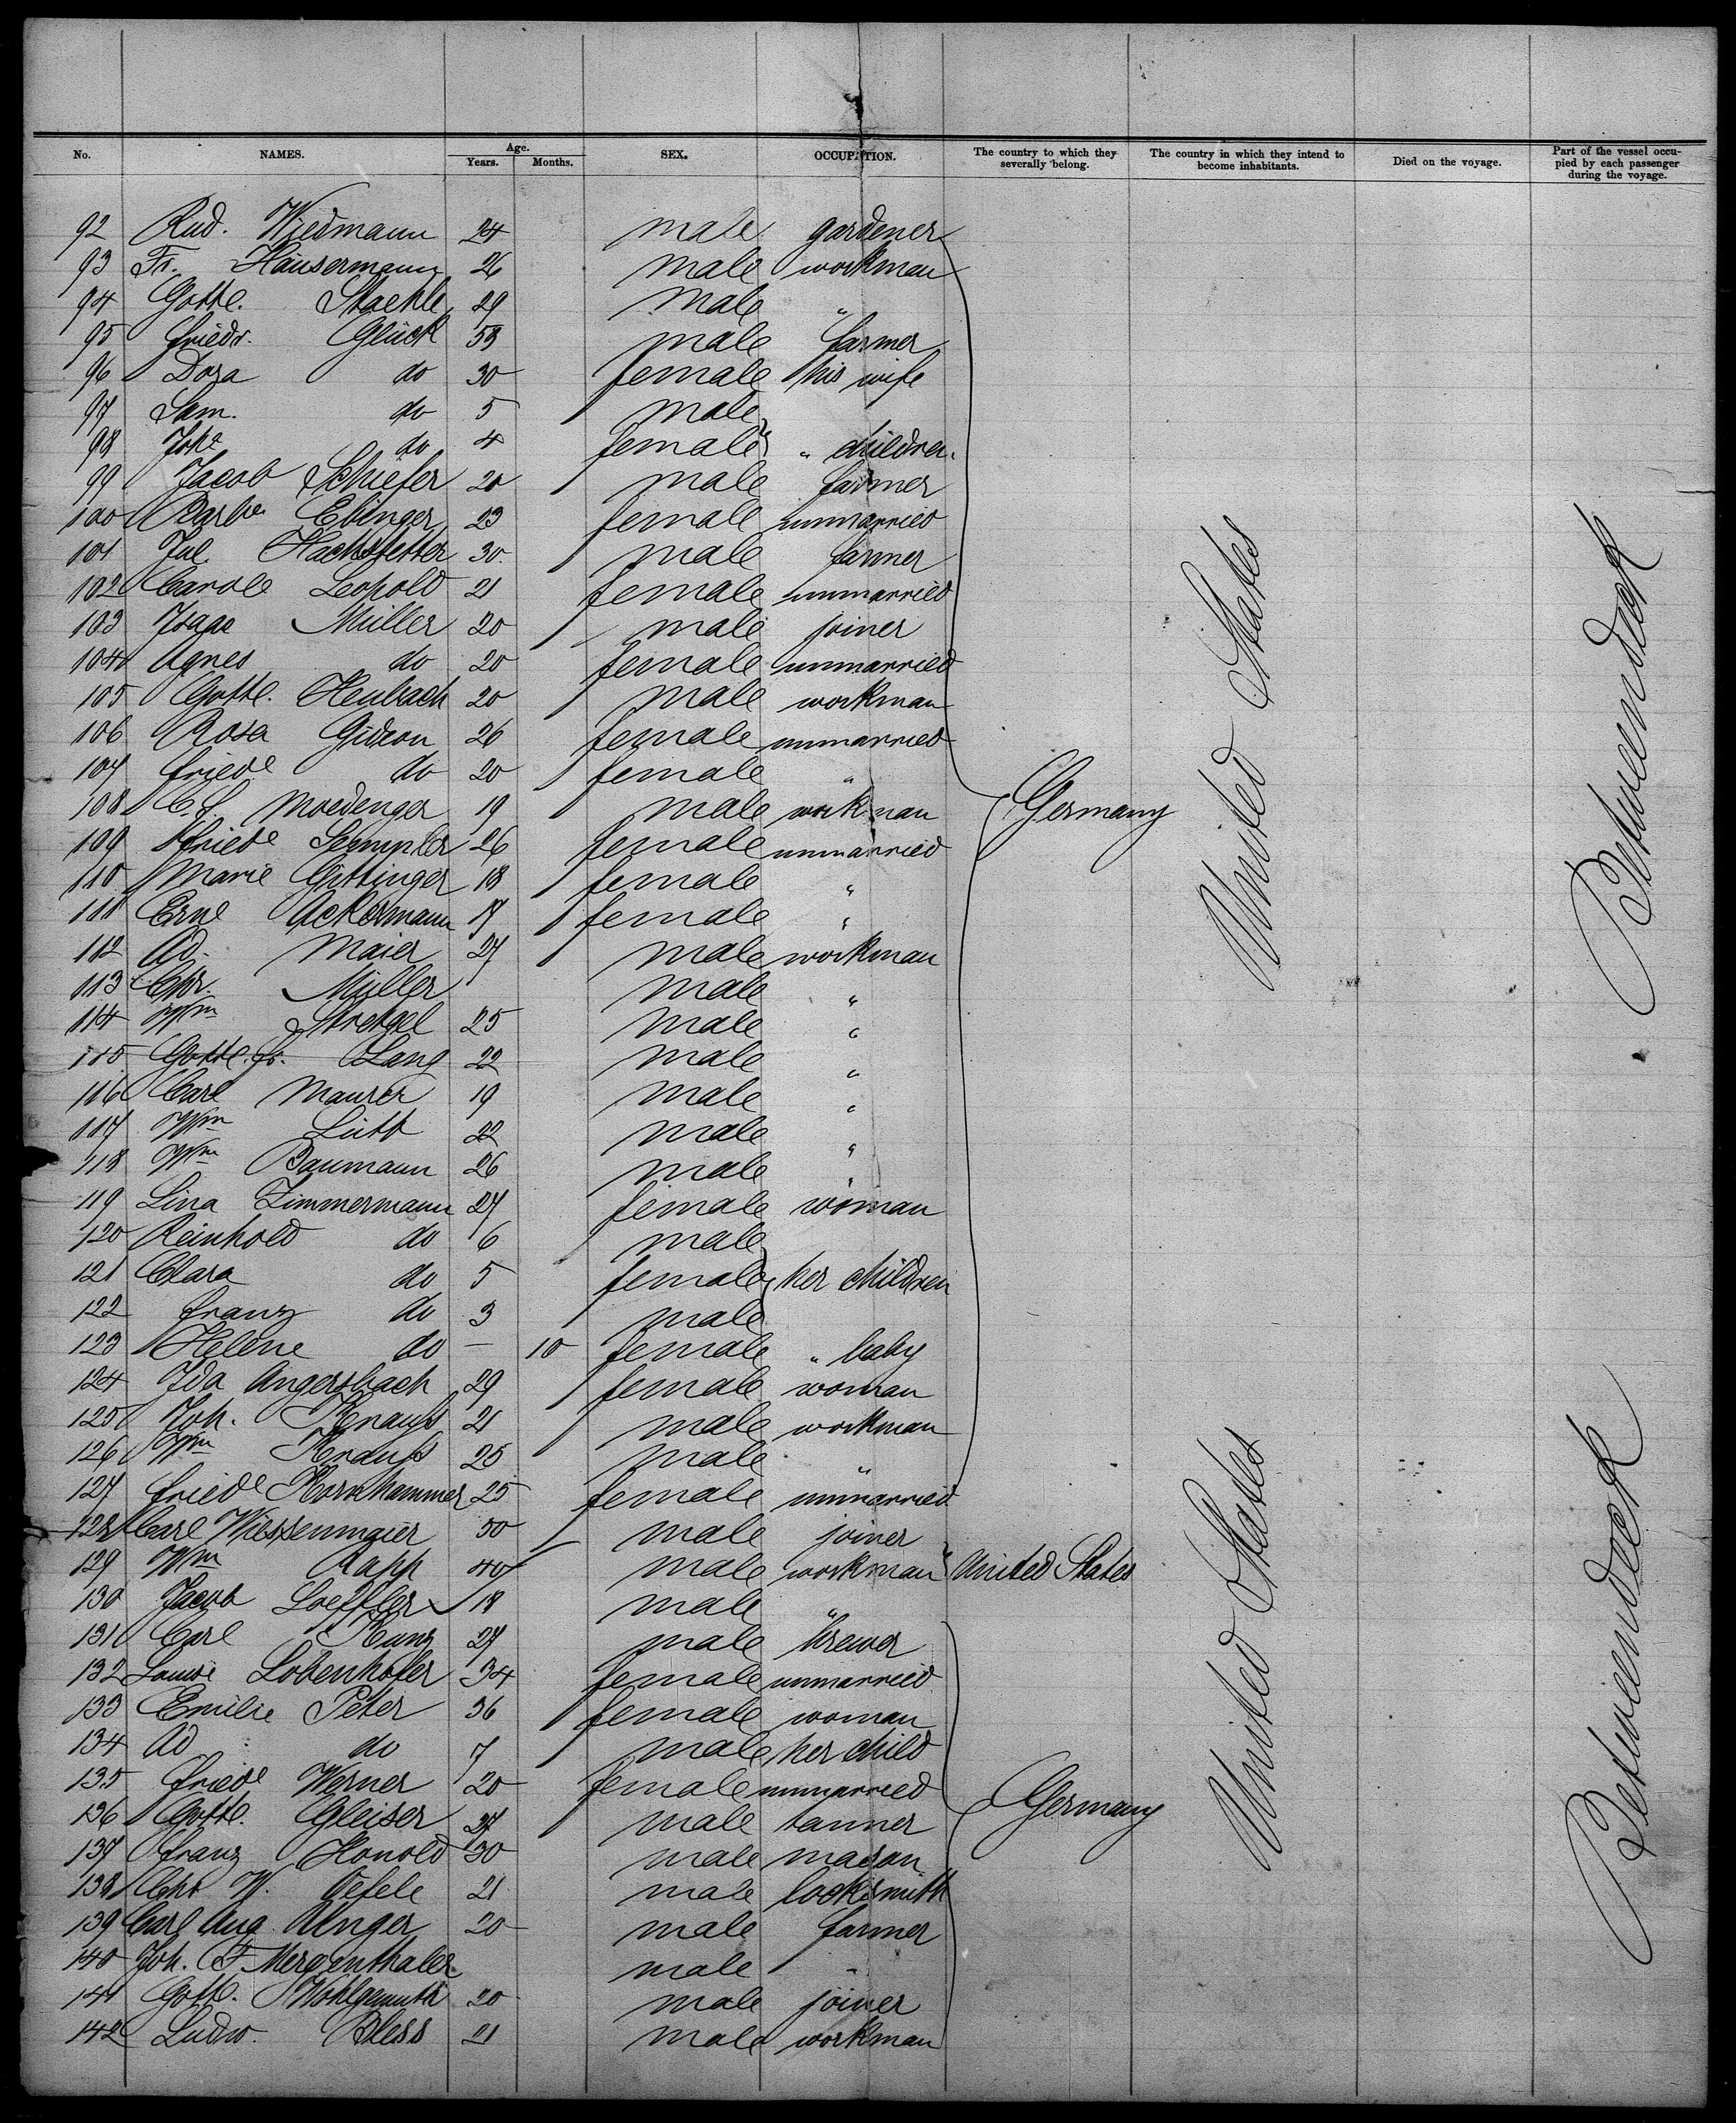 No. NAMES. Age. Years. Months. SEX. OCCUPATION. The country to which they severally belong. The country in which they intend to become inhabitants. Died on the voyage. Part of the vessel occupied by each passenger during the voyage.
92 Rud. Wiedmann 24 male gardener
93 Fr. Häusermann 26 male workman
94 Gottl. Staehle 29 male "
95 Friedr. Glück 53 male farmer
96 Dora do 30 female his wife
97 Sam. do 5 male
98 do 4 female " children
99 Jacob Schiefer 20 male farmer
100 Barba Ebinger 23 female unmarried
101 Jul. Hachstetter 30 male farmer
102 Carole Leopold 21 female unmarried
103 Isaac Müller 20 male joiner
104 Agnes do 20 female unmarried
105 Gottl. Heubach 20 male workman
106 Rosa Gideon 26 female unmarried
107 Friede do 20 female "
108 C. F. Moedenger 19 male workman Germany
109 Friede Sempler 26 female unmarried
110 Marie Gittinger 18 female "
111 Erne Ackermann 17 female "
112 Ad. Maier 27 male workman United States Betweendeck
113 Chr. Müller male "
114 Wm 25 male "
115 Gottl. Fr. Lang 22 male "
116 Carl Maurer 19 male "
117 Wm Lütt 22 male "
118 Wm Baumann 26 male "
119 Lina Zimmermann 27 female woman
120 Reinhold do 6 male
121 Clara do 5 female her children
122 Franz do 3 male
123 Helene do — 10 female " baby
124 Ida Angersbach 29 female woman
125 Joh. Knauss 21 male workman
126 Wm Knauss 25 male "
127 Friede Kornhammer 25 female unmarried
128 Carl Wiessenmaier 30 male joiner
129 Wm Rapp 40 male workman United States
130 Jacob Loeffler 18 male "
131 Carl Kunz 27 male brewer
132 Louise Lobenhofer 34 female unmarried
133 Emilie Peter 36 female woman
134 Ad do 7 male her child
135 Friede Werner 20 female unmarried
136 Gottl. Gleiser 27 male tanner Germany United States Betweendeck
137 Franz Honold 30 male mason
138 Chr W. Oefele 21 male locksmith
139 Carl Aug. Unger 20 male farmer
140 Joh. F. Mergenthaler male "
141 Gottl. Wohlgemuth 20 male joiner
142 Ludw. Bless 21 male workman